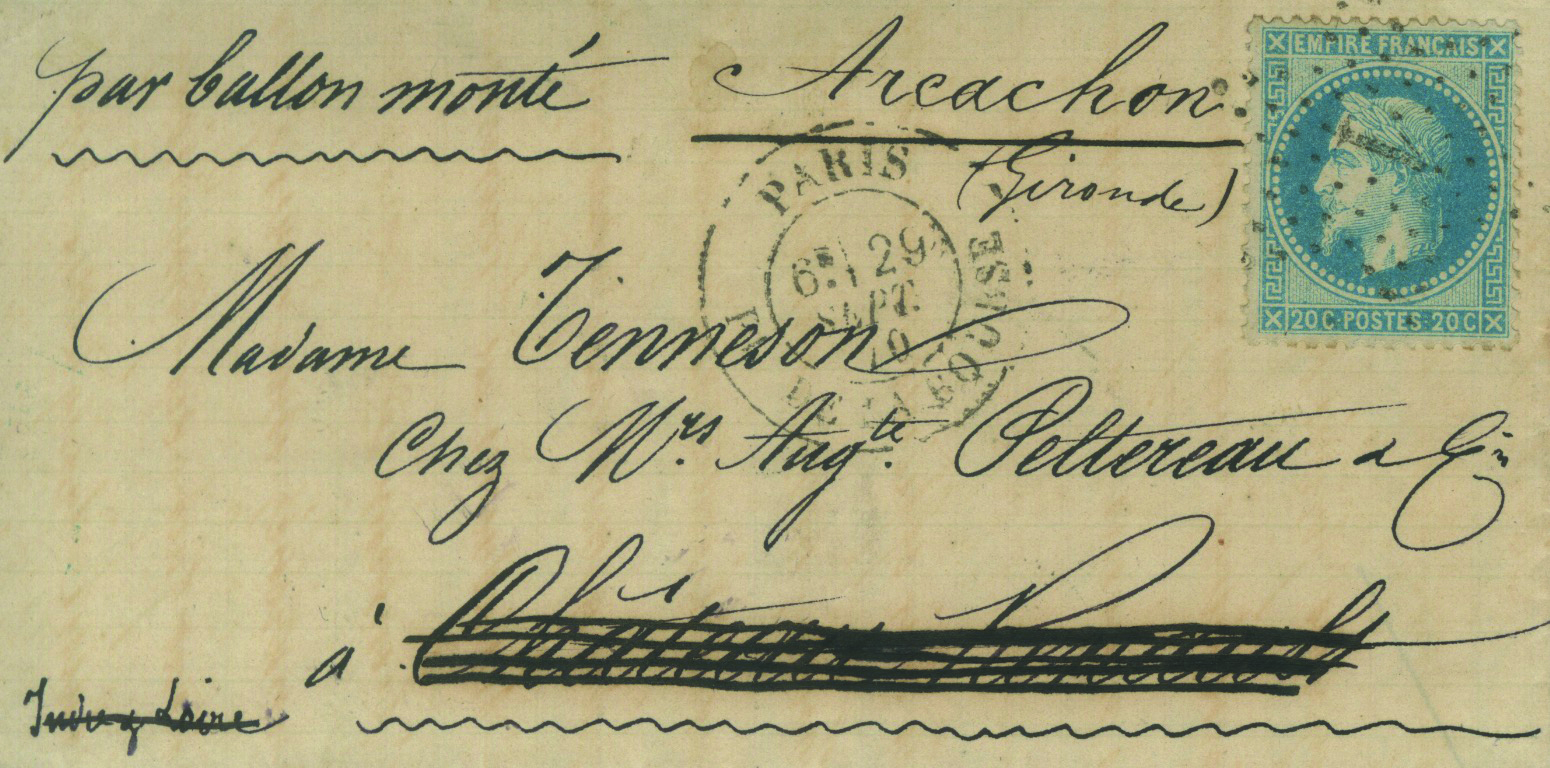 par ballon monté
Arcachon
(Gironde)
EMPIRE FRANÇAIS
20 C. POSTES 20 C
PARIS
6E 29
SEPT.
70
PL. DE LA BOURSE
Madame Tenneson
Chez Mrs. Augte. Peltereau & Cie
à Château Renault
Indre & Loire